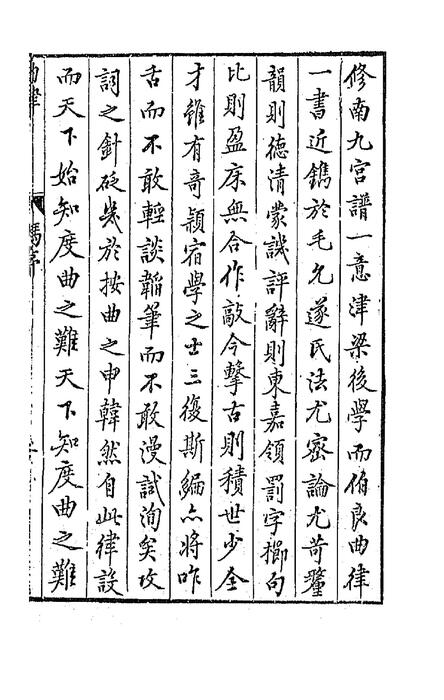 修南九宮譜一意津梁後學而伯良曲律
一書近鐫於毛允遂氏法尤密論尤苛釐
韻則德清蒙譏評辭則東嘉領罰字櫛句
比則盈床無合作敲今擊古則積世少全
才雖有奇穎宿學之士三復斯編亦將咋
舌而不敢輕談韜筆而不敢漫試洵矣攻
詞之針砭幾於按曲之申韓然自此律設
而天下始知度曲之難天下知度曲之難
曲律
馮序